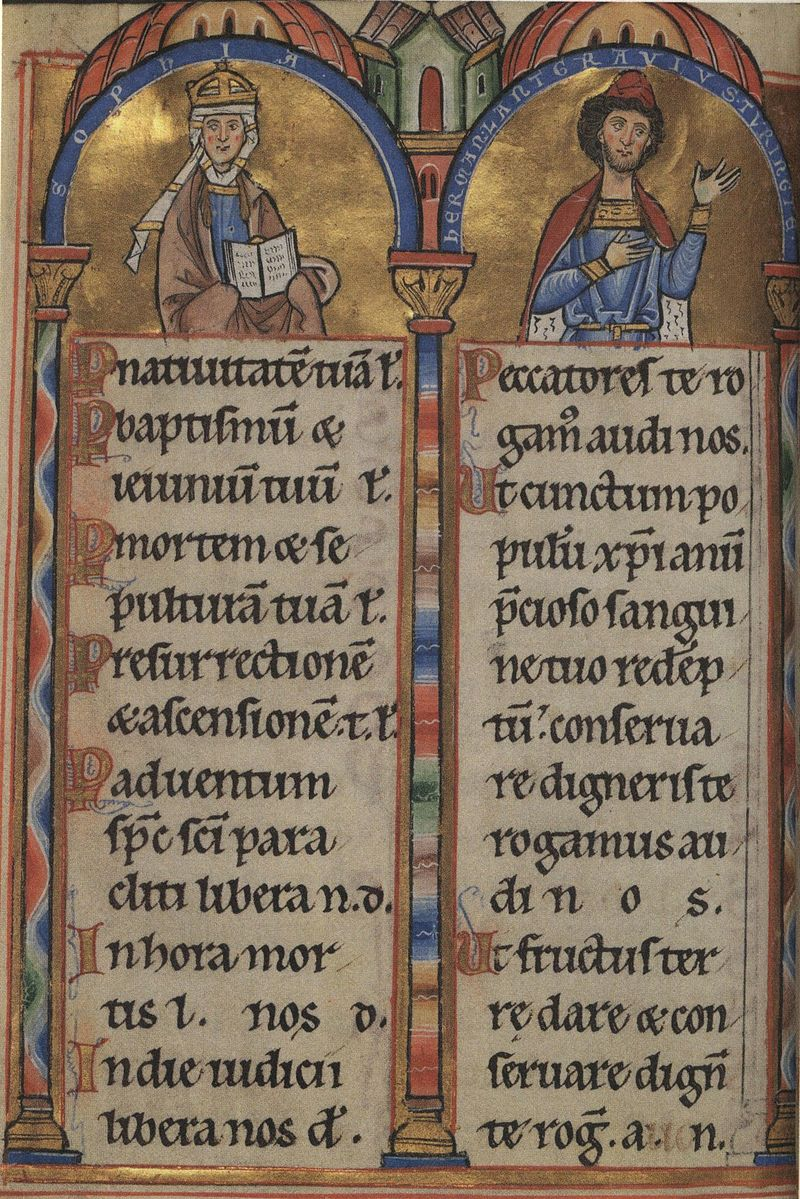 SOPHIA
HERMAN LANTGRAVIVS TVRINGIE
P nativitatē tuā l'.
P baptismū &
ieiuniū tuū l'.
P mortem & se
pulturā tuā l'.
P resurrectionē
& ascensionē. t. l'.
P adventum
sp̄c sc̄i para
cliti libera n. d.
In hora mor
tis l. nos d.
In die iudicii
libera nos d'.
Peccatores te ro
gam᷒ audi nos.
Ut cunctum po
pulū xp̄ianū
p̄cioso sangui
ne tuo redēp
tū. conserva
re digneris te
rogamus au
di n o s.
Ut fructus ter
rę dare & con
servare dign̄
te rog̃. a. n.